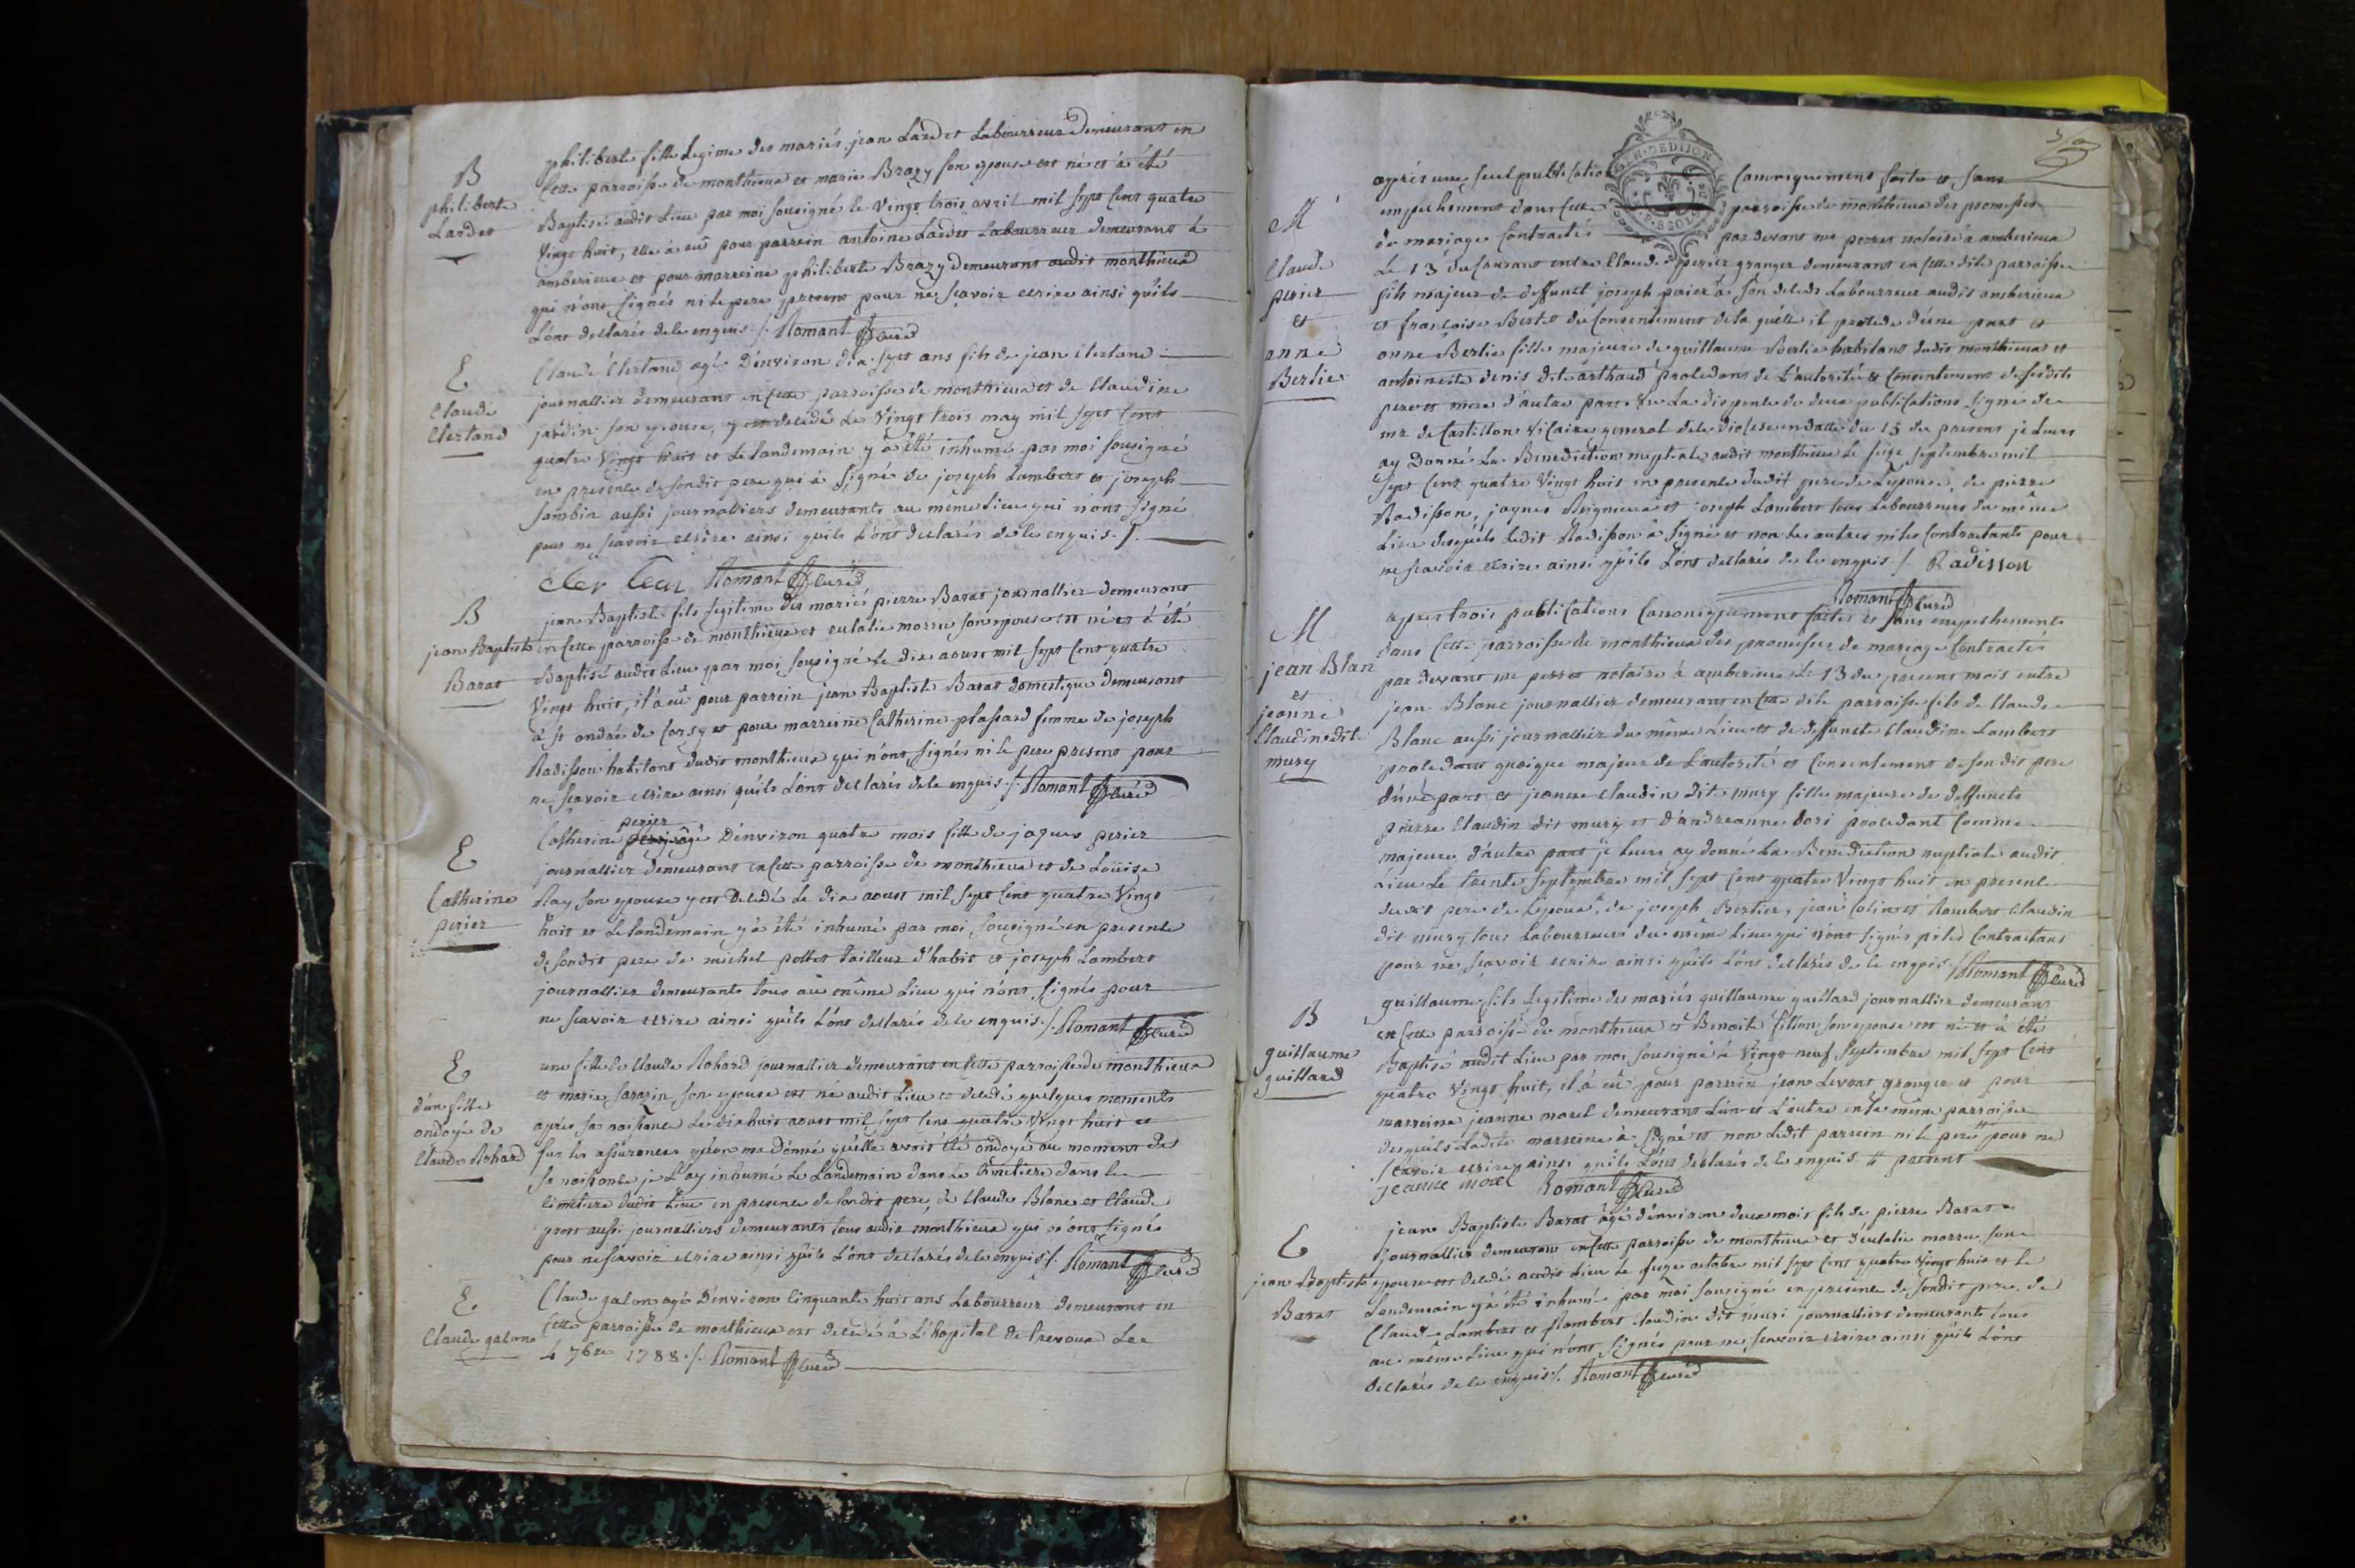 B
philiberte
Lardet
philiberte fille Legime des mariés jean Lardet Labourreur Demeurant en
Cette parroisse de monthieux et marie Brazy son epouse est né et à été
Baptisé audit Lieu par moi sousigné le Vingt trois avril mil sept Cent quatre
Vingt huit, elle à eû pour parrein antoine Lardet Labourreur demeurant à
amberieux et pour marreine philiberte Brazy Demeurant audit monthieux
qui n'ont signés ni le pere present pour ne sçavoir ecrire ainsi qu'ils
L'ont declarés de le enquis ./. Romant curé
E
Claude
Clertand
Claude Clertand agé D'environ dix sept ans fils de jean Clertand
journallier demeurant en Cette parroisse de monthieux et de Claudine
jardin son epouse, y est decedé Le Vingt trois may mil sept Cent
quatre Vingt huit et Le landemain y à été inhumé par moi sousigné
en presence de sondit pere qui à signé de joseph Lambert et joseph
sambin aussi journalliers demeurants au même Lieu qui n'ont signé
pour ne sçavoir ecrire ainsi qu'ils L'ont declarés de le enquis ./.
Romant curé
B
jean Baptiste
Barat
jean Baptiste fils Legitime des mariés pierre Barat journallier demeurant
en Cette parroisse de monthieux et eulalie morru son epouse est né et à été
Baptisé audit Lieu par moi sousigné Le dix aoust mil sept Cent quatre
Vingt huit, il à eû pour parrein jean Baptiste Barat domestique demeurant
à st andré de Corsy et pour marreine Catherine plassard femme de joseph
Radisson habitant dudit monthieux qui n'ont signés ni le pere present pour
ne sçavoir ecrire ainsi qu'ils L'ont declarés de le enquis ./. Romant curé
E
Catherine
perier
perier
Catherine agé D'environ quatre mois fille de jaques perier
journallier demeurant en Cette parroisse de monthieux et de Louise
Ray son epouse y est Decedé Le dix aoust mil sept Cent quatre Vingt
huit et Le landemain y à été inhumé par moi sousigné en presence
de sondit pere de michel pottet tailleur d'habit et joseph Lambert
journallier demeurants tous au même Lieu qui n'ont signés pour
ne sçavoir ecrire ainsi qu'ils L'ont declarés de le enquis ./. Romant curé
E
d'une fille
ondoyé de
Claude Rohard
une fille de Claude Rohard journallier demeurant en Cette parroisse de monthieux
et marie sarazin son epouse est né audit Lieu et decedé quelques moments
aprés sa naissance Le dix huit aoust mil sept Cent quatre Vingt huit et
sur les assurances qu'on ma Donné qu'elle avoit été ondoyé au moment de
sa naissance je L'ay inhumé Le Landemain dans Le Cimetiere dans le
Cimetiere dudit Lieu en presence de sondit pere, de Claude Blanc et Claude
gros aussi journalliers demeurants tous audit monthieux qui n'ont signés
pour ne sçavoir ecrire ainsi qu'ils L'ont declarés de le enquis ./. Romant curé
E
Claude galon
Claude galon agé D'environ Cinquante huit ans Labourreur demeurant en
Cette parroisse de monthieux est decedé à L'hopital de trevoux Le
4 7bre 1788 ./. Romant curé
GEN. DE DIJON
M
Claude
perier
et
anne
Berlie
aprés une seul publication Canoniquement faite et sans
empechement dans Cette parroisse de monthieux des promesses
de mariage Contractés par devant me perret notaire à amberieux
Le 13 du Courant entre Claude perier granger demeurant en Cette dite parroisse
fils majeur de deffunct joseph perier à son deceds Labourreur audit amberieux
et françoise Bertet du Consentement de la quelle il procede d'une part et
anne Berlie fille majeure de guillaume Berlie habitant dudit monthieux et
antoinette denis dite arthaud procedant de L'autorité et Consentement de sesdits
pere et mere d'autre part. Vu La dispense de deux publications signe de
mr de Castillon Vicaire general de le diocese en datte du 15 du present je Leurs
ay Donné La Benediction nuptiale audit monthieux Le seize septembre mil
sept Cent quatre Vingt huit en presence dudit pere de L'epouse, de pierre
Radisson, jaques Reignieux et joseph Lambert tous Labourreurs du même
Lieu desquels Ledit Radisson à signé et non les autres ni les Contractants pour
ne sçavoir ecrire ainsi qu'ils L'ont declarés de le enquis ./. Radisson
Romant curé
M
jean Blan
et
jeanne
Claudin dite
mury
apres trois publications Canoniquement faites et sans empechement
dans Cette parroisse de monthieux des promesses de mariage Contractés
par devant me perret notaire à amberieux Le 13 du present mois entre
jean Blanc journallier demeurant en Cette dite parroisse fils de Claude
Blanc aussi journallier du même Lieu et de deffuncte Claudine Lambert
procedant quoique majeur de L'autorité et Consentement de son dit pere
d'une part et jeanne Claudin dite mury fille majeure de deffuncts
pierre Claudin dit mury et d'andreanne dori procedant Comme
majeure, d'autre part je Leurs ay donné La Benediction nuptiale audit
Lieu Le trente septembre mil sept Cent quatre Vingt huit en presence
dudit pere de L'epoux, de joseph Bertier, jean Colin et Rambert Claudin
dit mury tous Labourreurs du meme Lieu qui n'ont signés ni les Contractans
pour ne sçavoir ecrire ainsi qu'ils L'ont declarés de le enquis ./. Romant curé
B
guillaume
guillard
guillaume fils Legitime des mariés guillaume guillard journallier demeurant
en Cette parroisse de monthieux et Benoite fillion son epouse est né et à été
Baptisé audit Lieu par moi sousigné le Vingt neuf septembre mil sept Cent
quatre Vingt huit, il à eû pour parrein jean Levrat granger et pour
marreine jeanne morel demeurant L'un et L'autre en la même parroisse
desquels Ladite marreine à signé et non Ledit parrein ni le pere # pour ne
sçavoir ecrire ainsi qu'ils L'ont declarés de le enquis # present
jeanne morel Romant curé
E
jean Baptiste
Barat
jean Baptiste Barat âgé d'environ deux mois fils de pierre Barat
journallier demeurant en Cette parroisse de monthieux et d'eulalie morru son
epouse est decedé audit Lieu Le seize octobre mil sept Cent quatre Vingt huit et le
Landemain y à été inhumé par moi sousigné en presence de sondit pere, de
Claude Lambert et Rambert Claudin dit muri journalliers demeurants tous
au même Lieu qui n'ont signés pour ne sçavoir ecrire ainsi qu'ils L'ont
declarés de le enquis ./. Romant curé